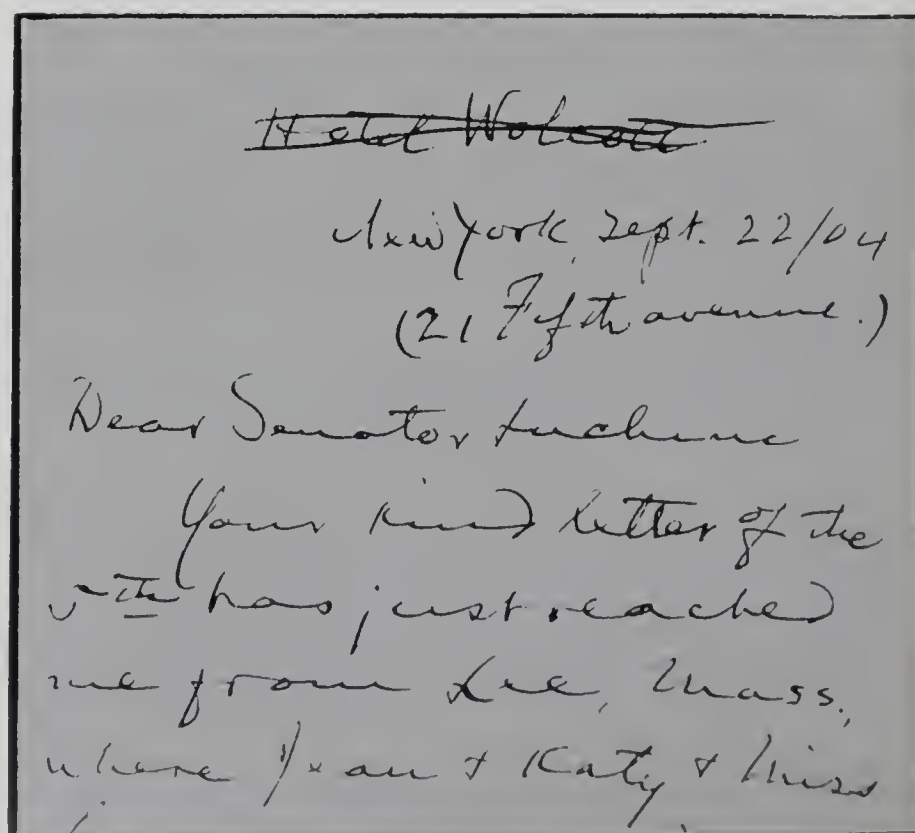 Hotel Wolcott
New York, Sept. 22/04
(21 Fifth avenue.)
Dear Senator
Your kind letter of the
5th has just reached
me from Lee, Mass.,
where Jean & Katy & Miss